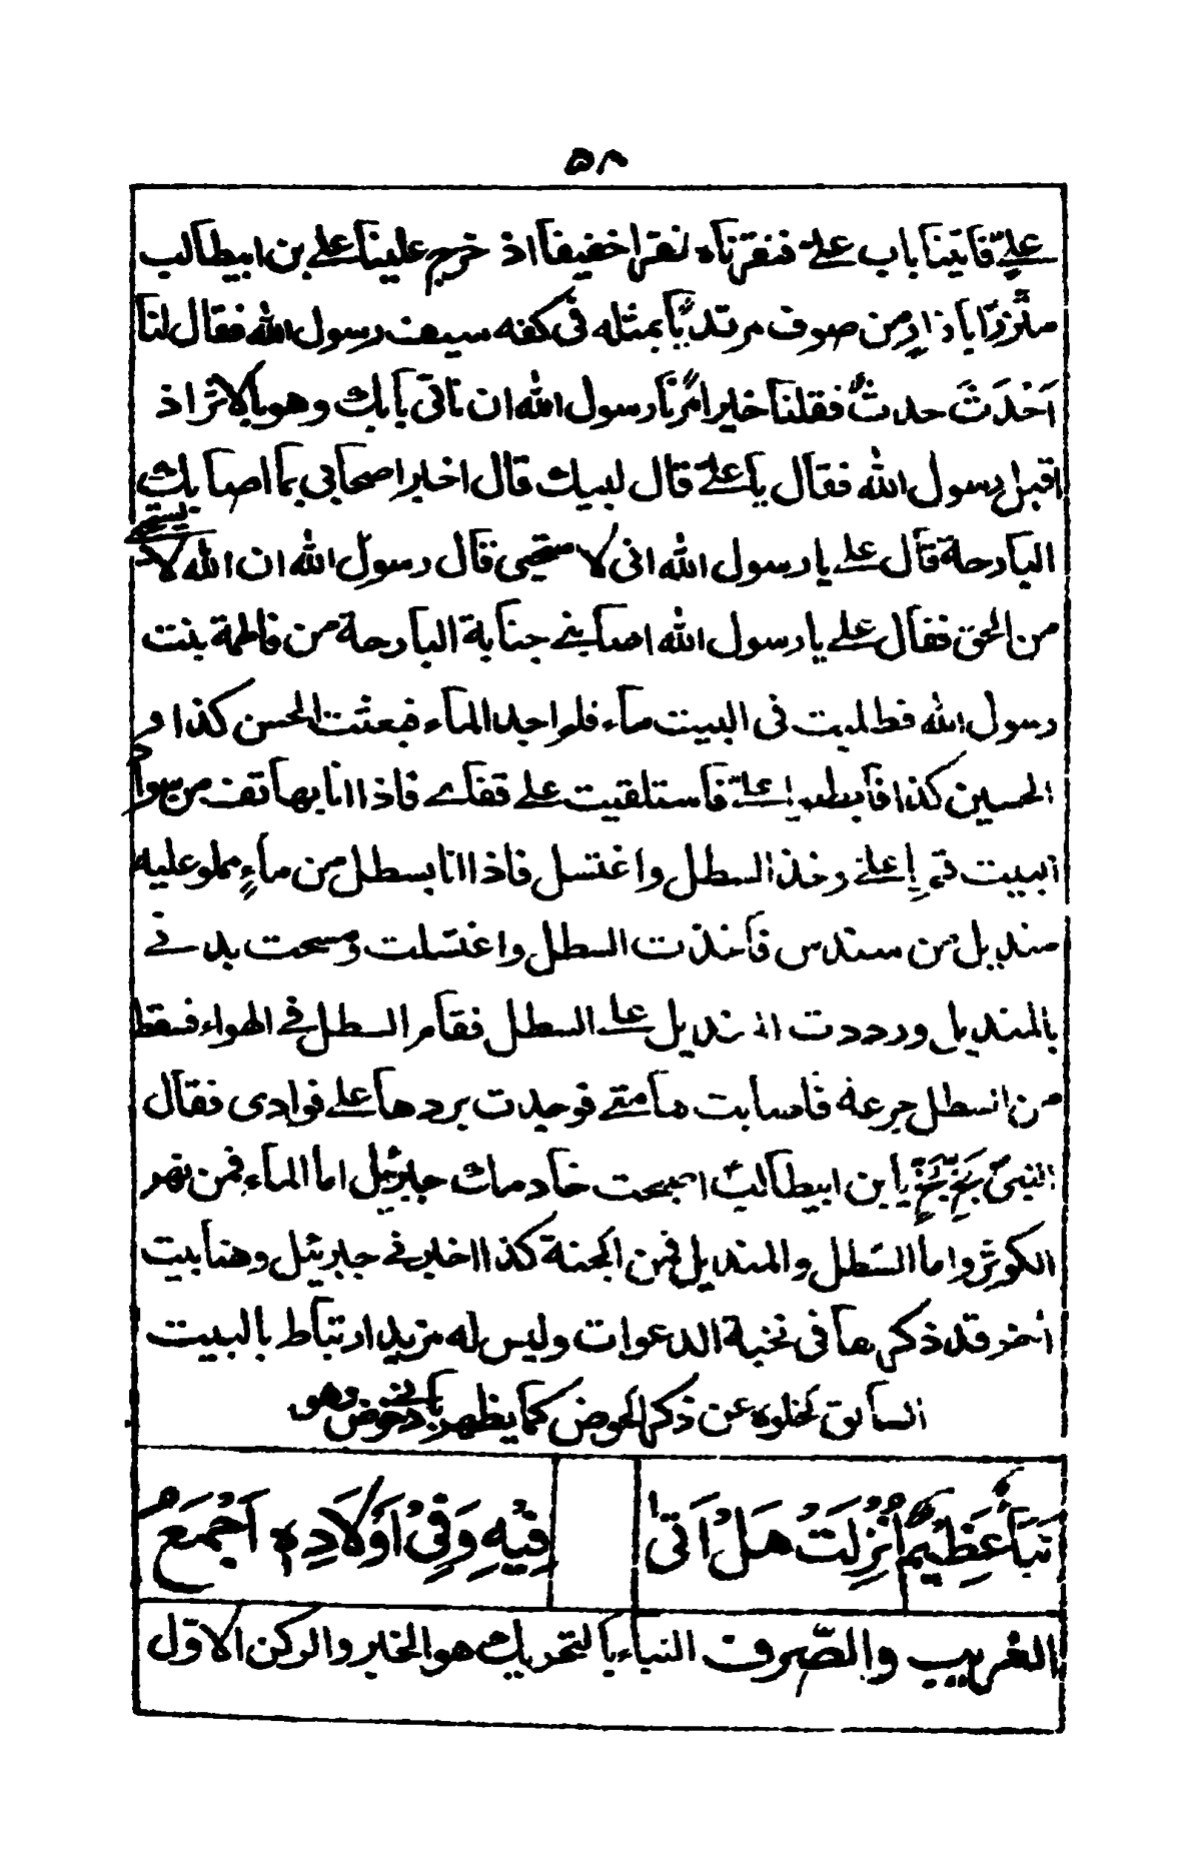 ۵۸
علی فاتینا باب علی فنقرناه نقرا خفیفا اذ خرج علینا علی بن ابیطالب
متزرا بازار من صوف مرتدیا بمثله فی کفه سیف رسول الله فقال لنا
اَحَدَثَ حدثٌ فقلنا خیر امرنا رسول الله ان ناتی بابك وهو بالاثر اذ
اقبل رسول الله فقال یا علی قال لبیك قال اخبر اصحابی بما اصابك
البارحة قال علی یا رسول الله انی لاستحیی قال رسول الله ان الله لا یستحیی
من الحق فقال علی یا رسول الله اصابنی جنابة البارحة من فاطمة بنت
رسول الله فطلبت فی البیت ماء فلم اجد الماء فبعثت الحسن کذا و
الحسین کذا فابطیا علیّ فاستلقیت علی قفای فاذا انا بهاتف من سواد
البیت قم یا علی وخذ السطل واغتسل فاذا انا بسطل من ماءٍ مملو علیه
مندیل من سندس فاخذت السطل واغتسلت ومسحت بدنی
بالمندیل ورددت المندیل علی السطل فقام السطل فی الهواء فسقط
من السطل جرعة فاصابت هامتی فوجدت بردها علی فوادی فقال
النبیّ بَخٍّ بَخٍّ یا ابن ابیطالب اصبحت خادمك جبرئیل اما الماء فمن نهر
الکوثر واما السّطل والمندیل فمن الجنة کذا اخبرنی جبرئیل وهنا بیت
اخر قد ذکرها فی نخبة الدعوات ولیس له مزید ارتباط بالبیت
السابق لخلوه عن ذکر الحوض کما یظهر بادنی خوض وهو
نَبَأٌ عَظِیْمٌ اُنْزِلَتْ هَلْ اَتٰی فِیْهِ وَفِیْ اَوْلَادِهِ اَجْمَعُ
الغریب والصّرف النباء بالتحریك هو الخبر والرکن الاوّل